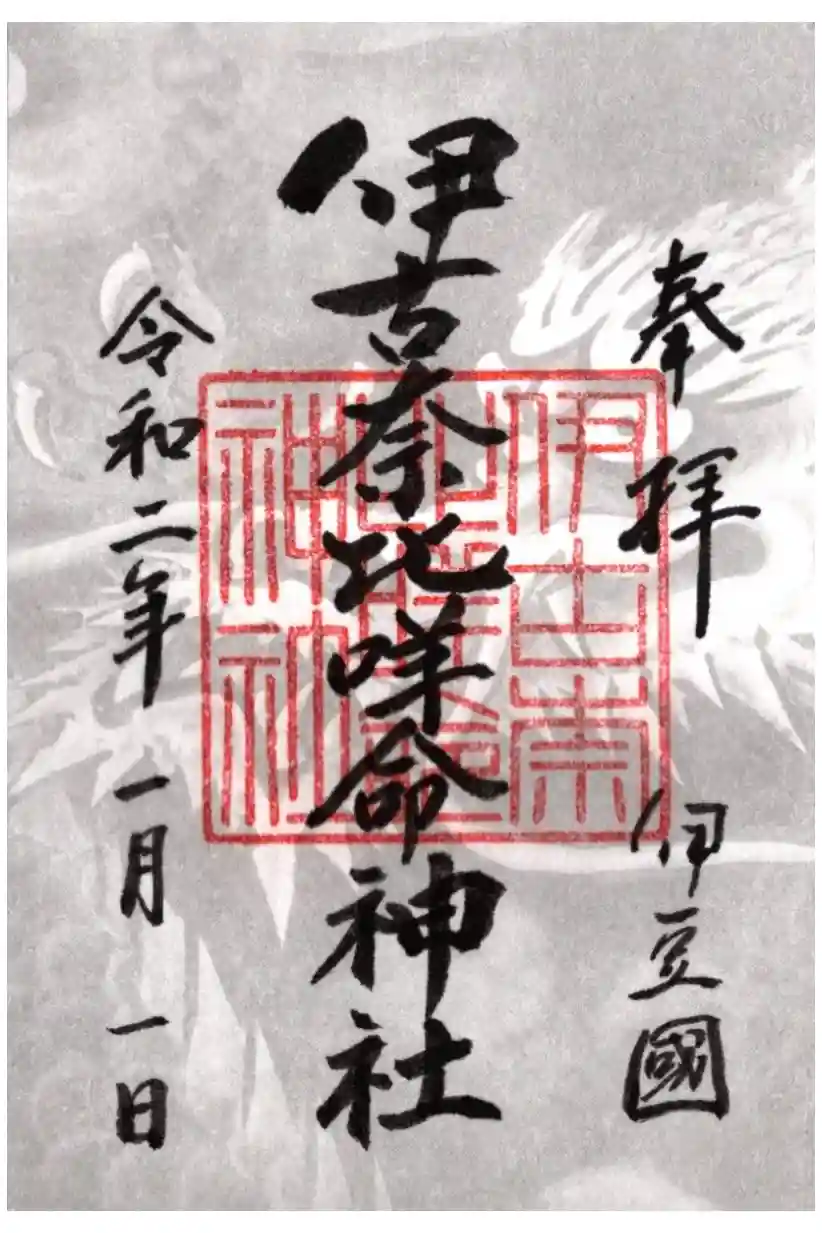 奉拝
伊豆國
伊古奈比咩命神社
令和二年一月一日
伊古奈
比咩命
神社